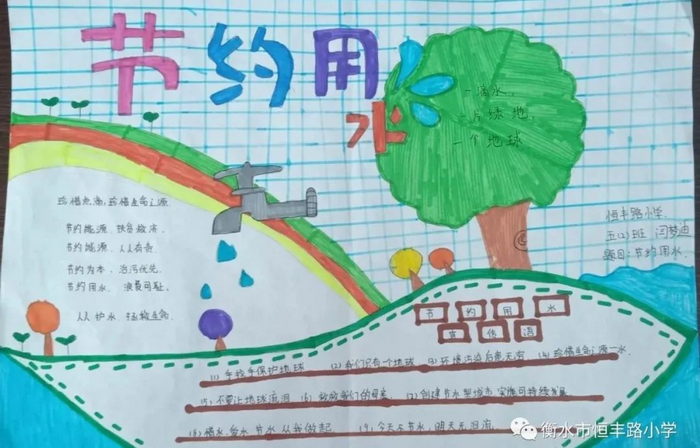 节约用
水
一滴水,
一片绿地,
一个地球
珍惜点滴,珍惜生命之源
节约能源 扶贫救济.
节约能源. 人人有责
节约为本,治污优先.
节约用水. 浪费可耻.
人人护水 拯救生命
恒丰路小学.
五(2)班 闫梦迪
题目:节约用水.
节 约 用 水
宣 传 语
(1) 手牵手保护地球 (2) 我们只有一个地球 (3) 环境污染后患无穷 (4) 珍惜生命之源一水.
(5) 不要让地球流泪 (6) 救救我们的母亲 (7) 创建节水型城市 实施可持续发展
(8) 惜水、爱水 节水 从我做起 (9) 今天不节水,明天无泪流.
衡水市恒丰路小学